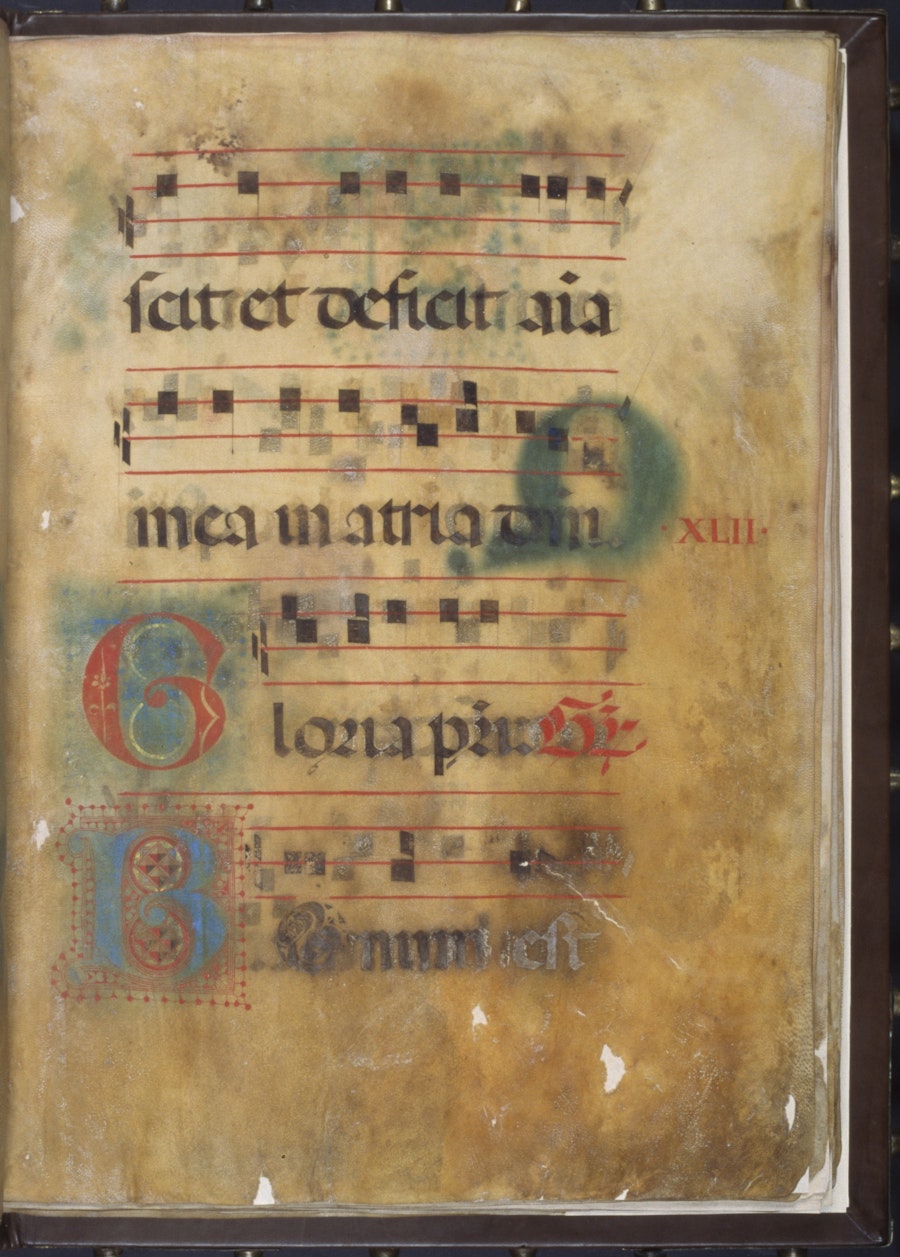 scit et deficit aia
mea in atria dni.
·XLII·
Gloria pri
Bonum est